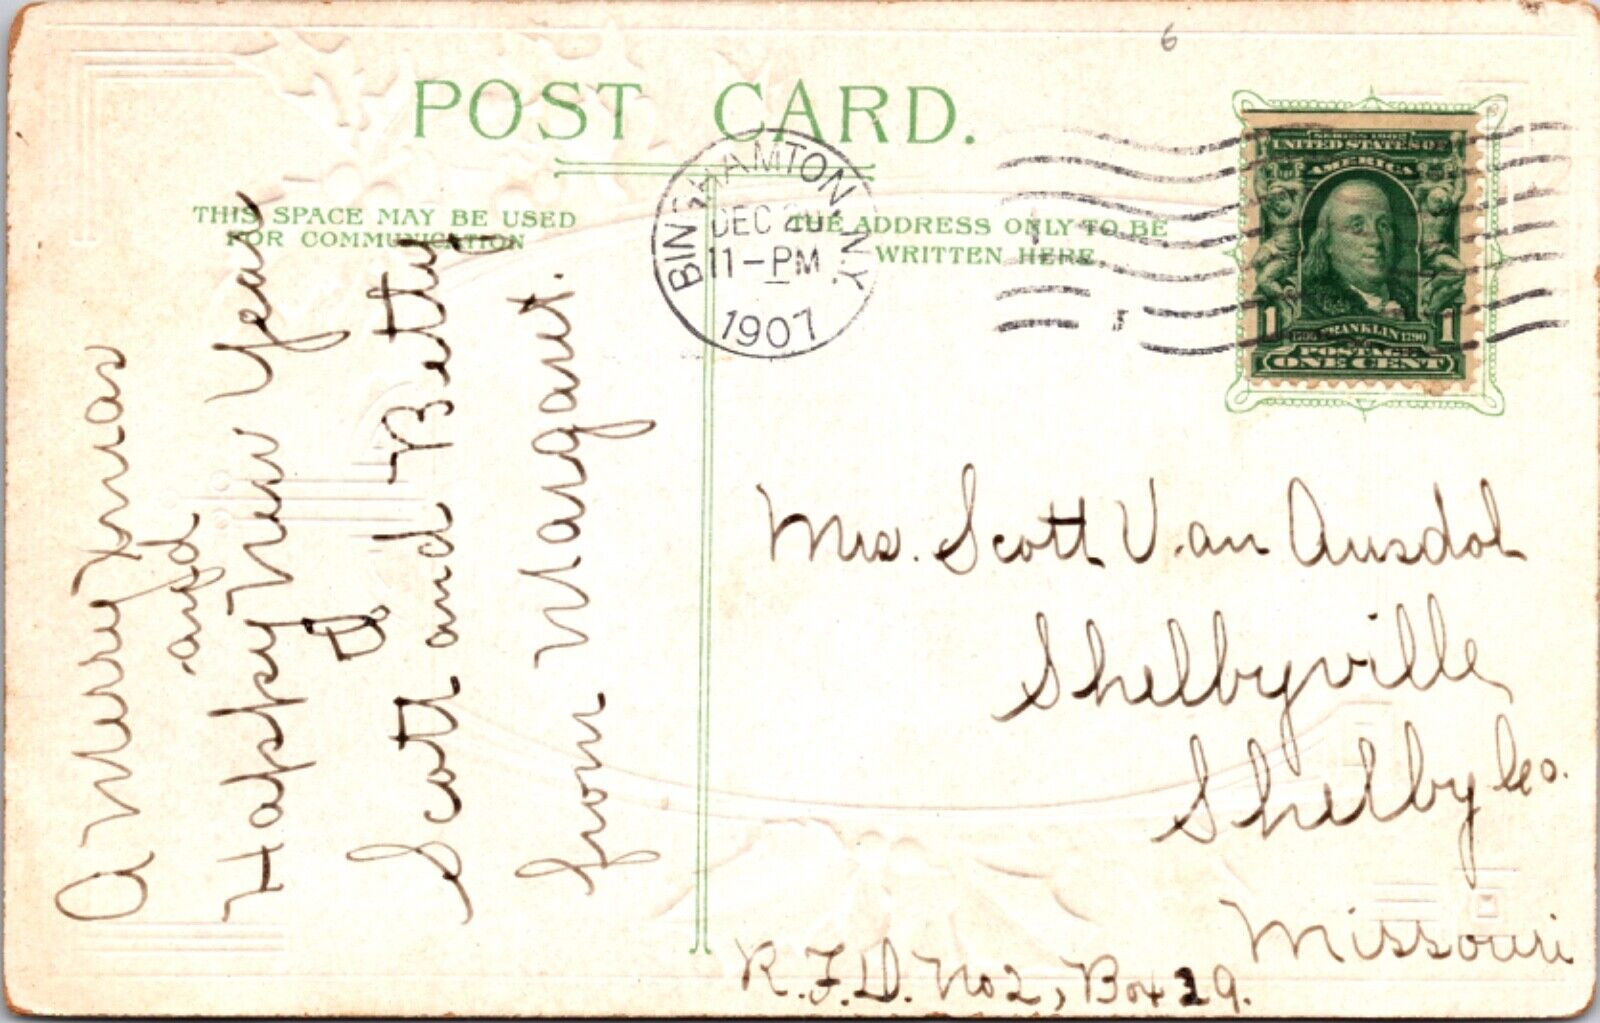 6
POST CARD.
THIS SPACE MAY BE USED
FOR COMMUNICATION
THE ADDRESS ONLY TO BE
WRITTEN HERE.
BINGHAMTON, N.Y.
DEC
11-PM
1907
SERIES 1902
UNITED STATES OF
AMERICA
1 1706 FRANKLIN 1790 1
POSTAGE
ONE CENT
A Merry Xmas
and
Happy New Year
to
Scott and Betty,
from Margaret.
Mrs. Scott Van Ausdol
Shelbyville
Shelby Co.
Missouri
R.F.D. No 2, Box 29.